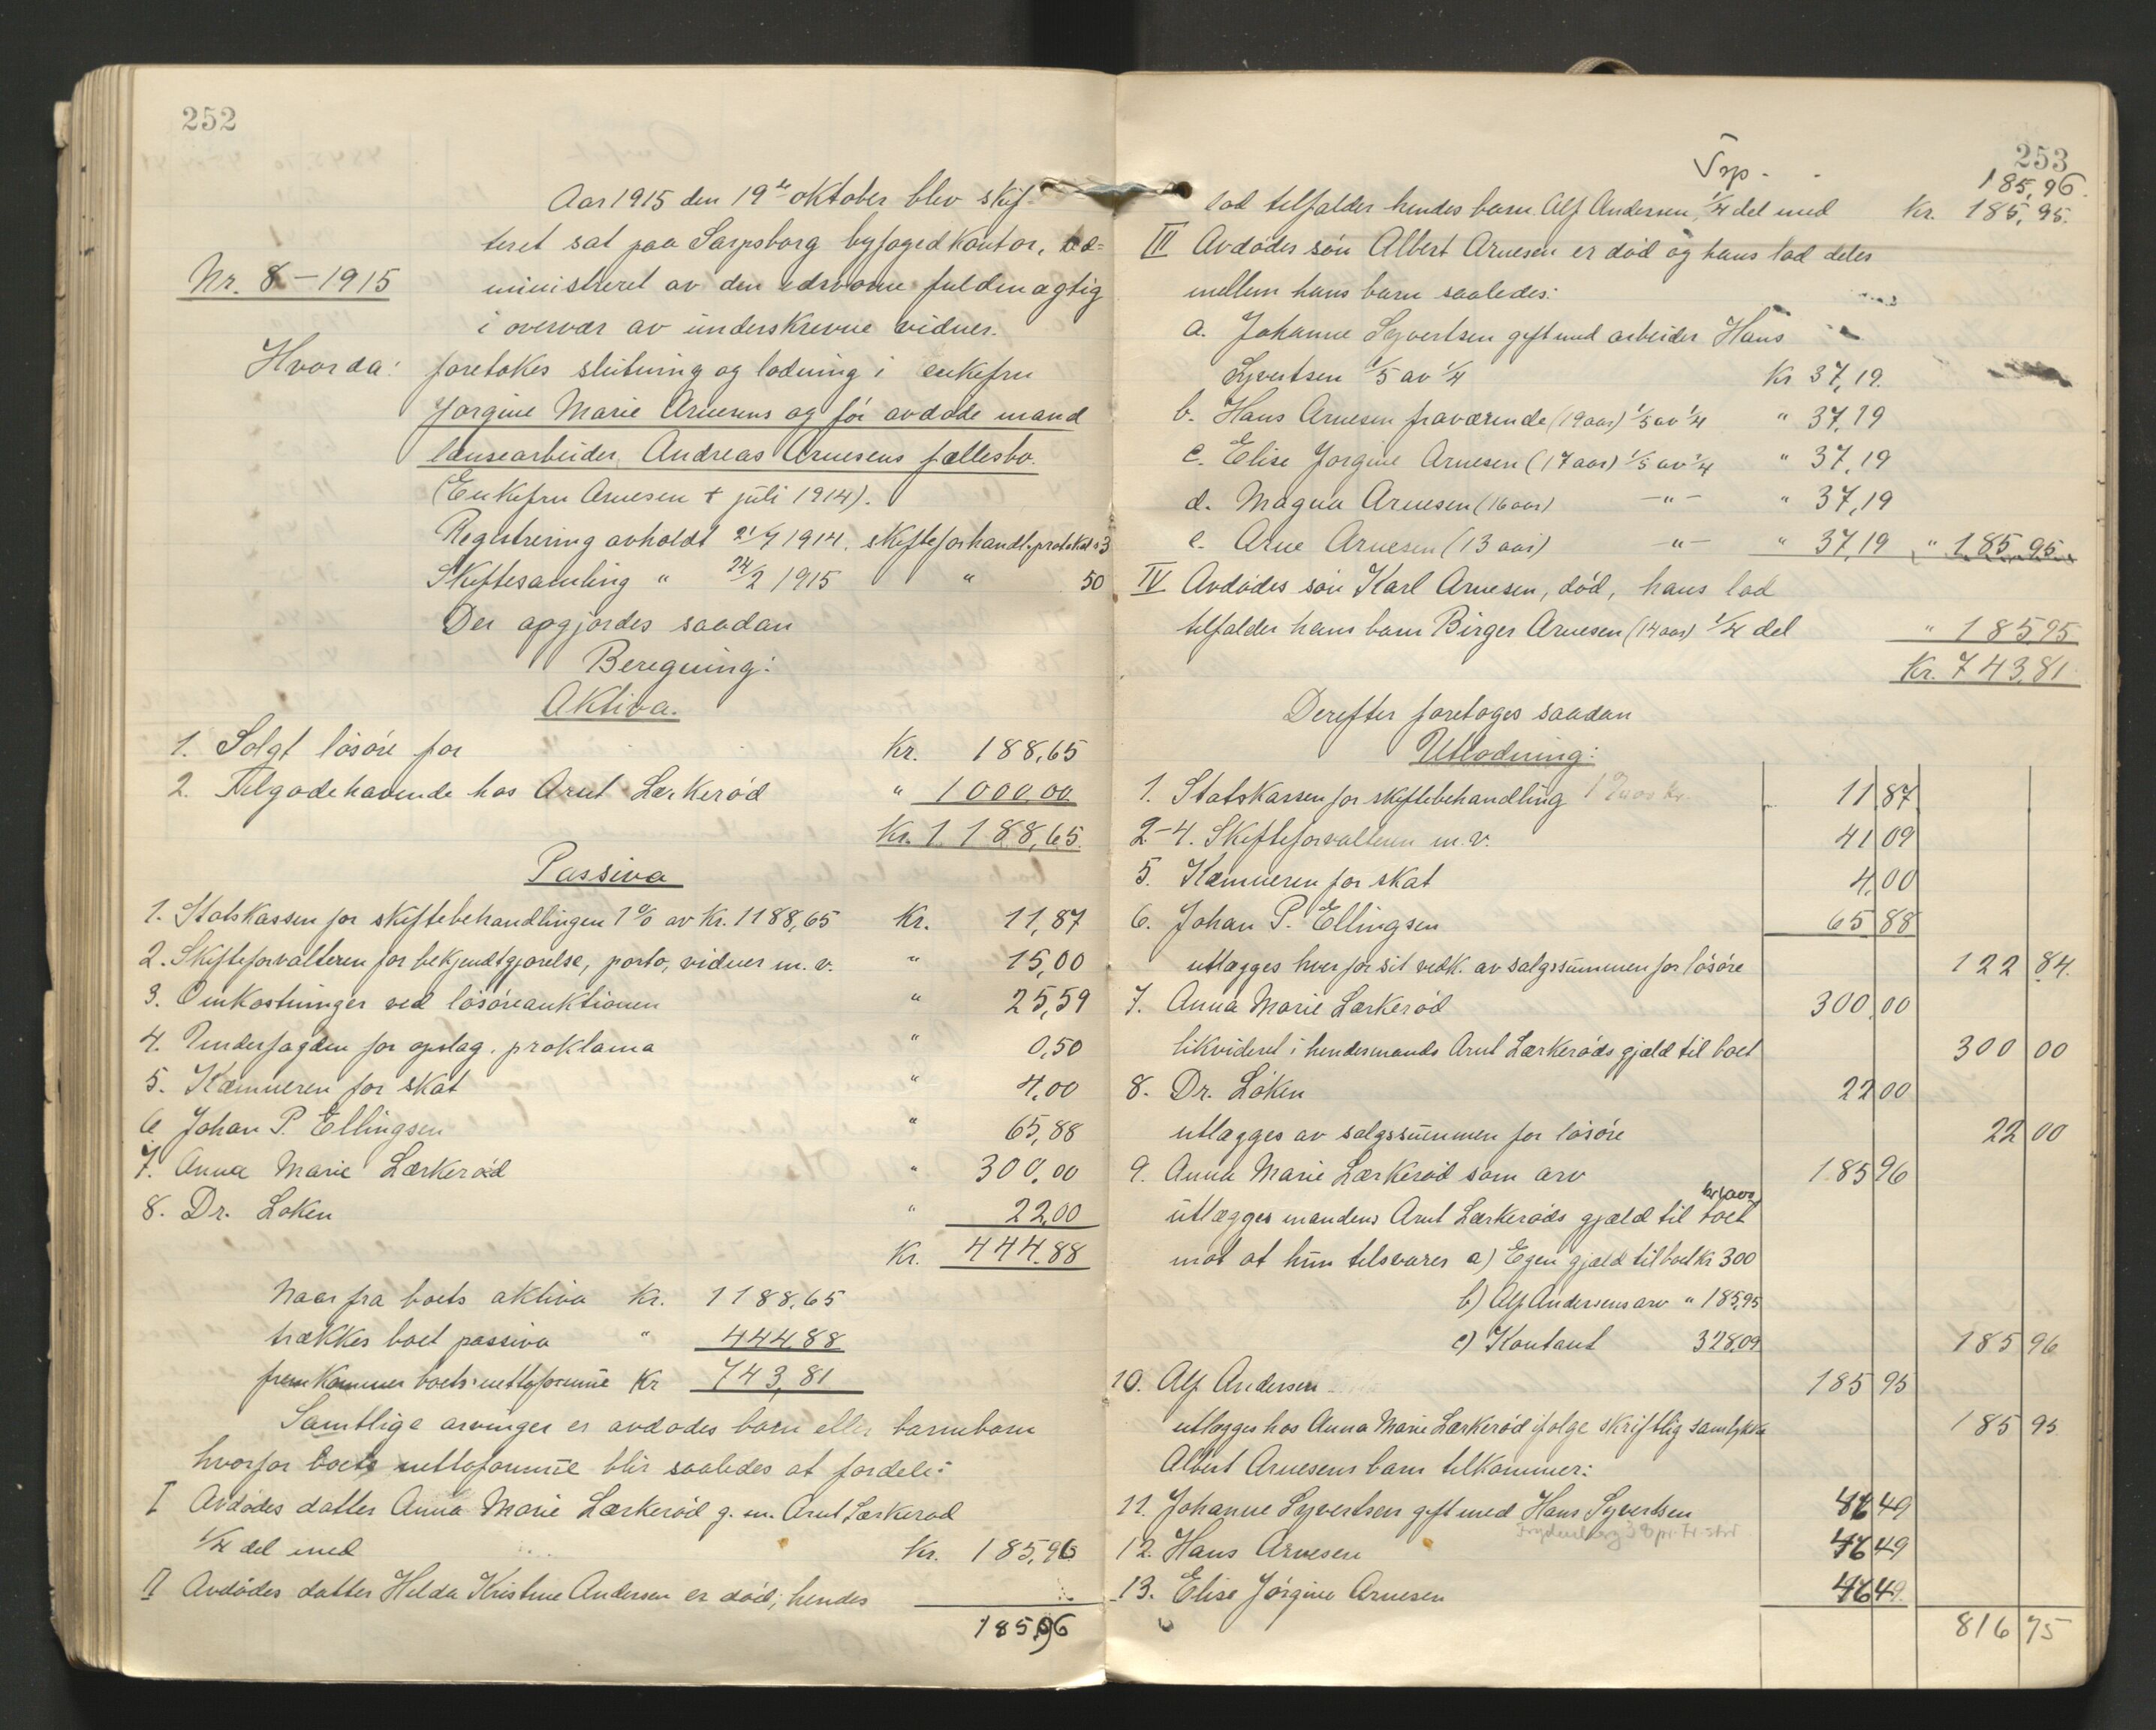 252
Aar 1915 den 19de oktober blev skif-
teret sat paa Sarpsborg byfogedkontor, ad=
Nr. 8 - 1915
ministreret av den edsvorne fuldmægtig
i overvær av underskrevne vidner.
Hvorda: foretokes slutning og lodning i enkefru
Jørgine Marie Arnesens og før avdøde mand
lænsearbeider Andreas Arnesens fællesbo.
(Enkefru Arnesen + juli 1914).
Registrering avholdt 21/7 1914. skifteforhandl.protokol s 3
Skiftesamling " 24/2 1915 " 50
Der opgjordes saadan
Beregning:
Aktiva.
1. Solgt løsøre for Kr. 188,65
2. Tilgodehavende hos Arnt Lærkerød " 1000,00
Kr. 1188,65.
Passiva
1. Statskassen for skiftebehandlingen 1% av Kr. 1188,65 Kr. 11,87
2. Skifteforvalteren for bekjendtgjørelse, porto, vidner m.v. " 15,00
3. Omkostninger ved løsøreauktionen " 25,59
4. Underfogden for opslag. proklama " 0,50
5. Kæmneren for skat " 4,00
6 Johan P. Ellingsen " 65,88
7. Anna Marie Lærkerød " 300,00
8. Dr. Løken " 22,00
Kr. 444.88
Naar fra boets aktiva Kr. 1188,65
trækkes boet passiva " 444,88
fremkommer boets nettoformue Kr 743,81
Samtlige arvinger er avdødes barn eller barnebarn
hvorfor boets nettoformue blir saaledes at fordele:
I Avdødes datter Anna Marie Lærkerød g. m. Arnt Lærkerød
1/4 del med Kr. 185,96
II Avdødes datter Helda Kristine Andersen er død; hendes
185,96
253
Trp. 185,96.
lod tilfalder hendes barn Alf Andersen, 1/4 del med Kr. 185,95.
III Avdødes søn Albert Arnesen er død og hans lod deles
mellem hans barn saaledes:
a. Johanne Syvertsen gift med arbeider Hans
Syvertsen 1/5 av 1/4 Kr 37,19.
b. Hans Arnesen fraværende (19 aar) 1/5 av 1/4 " 37,19
c. Elise Jørgine Arnesen (17 aar) 1/5 av 1/4 " 37,19
d. Magna Arnesen (16 aar) -"- " 37,19
e. Arne Arnesen (13 aar) -"- " 37,19 " 185,95
IV Avdødes søn Karl Arnesen, død, hans lod
tilfalder hans barn Birger Arnesen (14 aar) 1/4 del " 185,95
Kr. 743,81
Derefter foretoges saadan
Utlodning:
1. Statskassen for skiftebehandling 11 87
2-4. Skifteforvalteren m.v. 41 09
5. Kæmneren for skat 4,00
6. Johan P. Ellingsen 65 88
utlægges hver for sit vedk. av salgssummen for løsøre 122 84.
7. Anna Marie Lærkerød 300,00
likvideret i hendes mands Arnt Lærkerøds gjæld til boet 300 00
8. Dr. Løken 22 00
utlægges av salgssummen for løsøre 22 00
9. Anna Marie Lærkerød som arv 185 96
utlægges mandens Arnt Lærkerøds gjæld til boet kr 1000,
mot at hun tilsvarer a) Egen gjæld til boet kr 300
b) Alf Andersens arv " 185,95
c) Kontant 328,09 185 96
10. Alf Andersen 185 95
utlægges hos Anna Marie Lærkerød ifølge skriftlig samtykke 185 95
Albert Arnesens barn tilkommer:
11. Johanne Syvertsen gift med Hans Syvertsen 46 49
12. Hans Arnesen 46 49
13. Elise Jørgine Arnesen 46 49
816 75